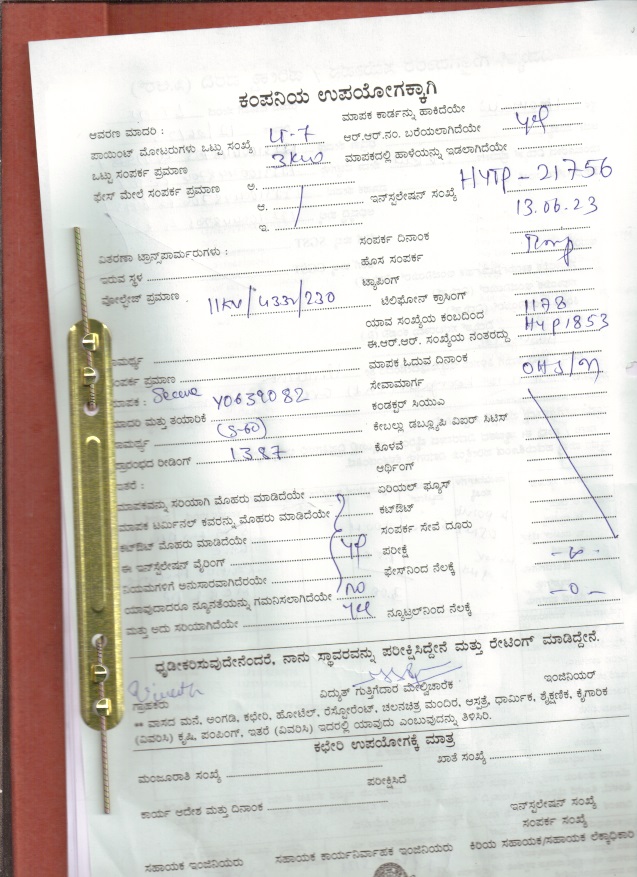 ಕಂಪನಿಯ ಉಪಯೋಗಕ್ಕಾಗಿ
ಆವರಣ ಮಾದರಿ : ಮಾಪಕ ಕಾರ್ಡನ್ನು ಹಾಕಿದೆಯೇ
ಪಾಯಿಂಟ್ ಮೋಟರುಗಳು ಒಟ್ಟು ಸಂಖ್ಯೆ LT-7 ಆರ್.ಆರ್.ನಂ. ಬರೆಯಲಾಗಿದೆಯೇ yes
ಒಟ್ಟು ಸಂಪರ್ಕ ಪ್ರಮಾಣ 3KW ಮಾಪಕದಲ್ಲಿ ಹಾಳೆಯನ್ನು ಇಡಲಾಗಿದೆಯೇ
ಫೇಸ್ ಮೇಲೆ ಸಂಪರ್ಕ ಪ್ರಮಾಣ ಅ.
ಆ. ಇನ್‌ಸ್ಟಲೇಷನ್ ಸಂಖ್ಯೆ HYTP-21756
ಇ. 13.06.23
ವಿತರಣಾ ಟ್ರಾನ್ಸ್‌ಫಾರ್ಮರುಗಳು : ಸಂಪರ್ಕ ದಿನಾಂಕ
ಇರುವ ಸ್ಥಳ ಹೊಸ ಸಂಪರ್ಕ Temp
ವೋಲ್ಟೇಜ್ ಪ್ರಮಾಣ . 11KV/433V/230 ಟ್ಯಾಪಿಂಗ್
ಟೆಲಿಫೋನ್ ಕ್ರಾಸಿಂಗ್
ಯಾವ ಸಂಖ್ಯೆಯ ಕಂಬದಿಂದ 1178
ಈ.ಆರ್.ಆರ್. ಸಂಖ್ಯೆಯ ನಂತರದ್ದು HYP1853
ಾಮರ್ಥ್ಯ ಮಾಪಕ ಓದುವ ದಿನಾಂಕ
ಂಪರ್ಕ ಪ್ರಮಾಣ ಸೇವಾಮಾರ್ಗ
ಮಾಪಕ : Secure Y0639082 ಕಂಡಕ್ಟರ್ ಸಿಯುಎ
ಮಾದರಿ ಮತ್ತು ತಯಾರಿಕೆ (5-60) ಕೇಬಲ್ಲು ಡಬ್ಲ್ಯೂಪಿ ವಿಐರ್ ಸಿಟಿಸ್
ಾಮರ್ಥ್ಯ ಕೊಳವೆ
ಪ್ರಾರಂಭದ ರೀಡಿಂಗ್ 1387 ಆರ್ಥಿಂಗ್
ಇತರೆ :
ಮಾಪಕವನ್ನು ಸರಿಯಾಗಿ ಮೊಹರು ಮಾಡಿದೆಯೇ ಏರಿಯಲ್ ಫ್ಯೂಸ್
ಮಾಪಕ ಟರ್ಮಿನಲ್ ಕವರನ್ನು ಮೊಹರು ಮಾಡಿದೆಯೇ ಕಟ್‌ಔಟ್
ಕಟ್‌ಔಟ್ ಮೊಹರು ಮಾಡಿದೆಯೇ ಸಂಪರ್ಕ ಸೇವೆ ದೂರು
ಈ ಇನ್‌ಸ್ಟಲೇಷನ್ ವೈರಿಂಗ್ yes ಪರೀಕ್ಷೆ
ನಿಯಮಗಳಿಗೆ ಅನುಸಾರವಾಗಿದೆರಯೇ ಫೇಸ್‌ನಿಂದ ನೆಲಕ್ಕೆ
ಯಾವುದಾದರೂ ನ್ಯೂನತೆಯನ್ನು ಗಮನಿಸಲಾಗಿದೆಯೇ no
ಮತ್ತು ಅದು ಸರಿಯಾಗಿದೆಯೇ yes ನ್ಯೂಟ್ರಲ್‌ನಿಂದ ನೆಲಕ್ಕೆ -0-
ಧೃಡೀಕರಿಸುವುದೇನೆಂದರೆ, ನಾನು ಸ್ಥಾವರವನ್ನು ಪರೀಕ್ಷಿಸಿದ್ದೇನೆ ಮತ್ತು ರೇಟಿಂಗ್ ಮಾಡಿದ್ದೇನೆ.
ಗ್ರಾಹಕರು ವಿದ್ಯುತ್ ಗುತ್ತಿಗೆದಾರ ಮೇಲ್ವಿಚಾರಕ ಇಂಜಿನಿಯರ್
** ವಾಸದ ಮನೆ, ಅಂಗಡಿ, ಕಛೇರಿ, ಹೋಟೆಲ್, ರೆಸ್ಟೋರೆಂಟ್, ಚಲನಚಿತ್ರ ಮಂದಿರ, ಆಸ್ಪತ್ರೆ, ಧಾರ್ಮಿಕ, ಶೈಕ್ಷಣಿಕ, ಕೈಗಾರಿಕ
(ವಿವರಿಸಿ) ಕೃಷಿ, ಪಂಪಿಂಗ್, ಇತರೆ (ವಿವರಿಸಿ) ಇದರಲ್ಲಿ ಯಾವುದು ಎಂಬುವುದನ್ನು ತಿಳಿಸಿರಿ.
ಕಛೇರಿ ಉಪಯೋಗಕ್ಕೆ ಮಾತ್ರ
ಮಂಜೂರಾತಿ ಸಂಖ್ಯೆ ಖಾತೆ ಸಂಖ್ಯೆ
ಪರೀಕ್ಷಿಸಿದೆ
ಕಾರ್ಯ ಆದೇಶ ಮತ್ತು ದಿನಾಂಕ ಇನ್‌ಸ್ಟಲೇಷನ್ ಸಂಖ್ಯೆ
ಸಂಪರ್ಕ ಸಂಖ್ಯೆ
ಸಹಾಯಕ ಇಂಜಿನಿಯರು ಸಹಾಯಕ ಕಾರ್ಯನಿರ್ವಾಹಕ ಇಂಜಿನಿಯರು ಕಿರಿಯ ಸಹಾಯಕ/ಸಹಾಯಕ ಲೆಕ್ಕಾಧಿಕಾರಿ